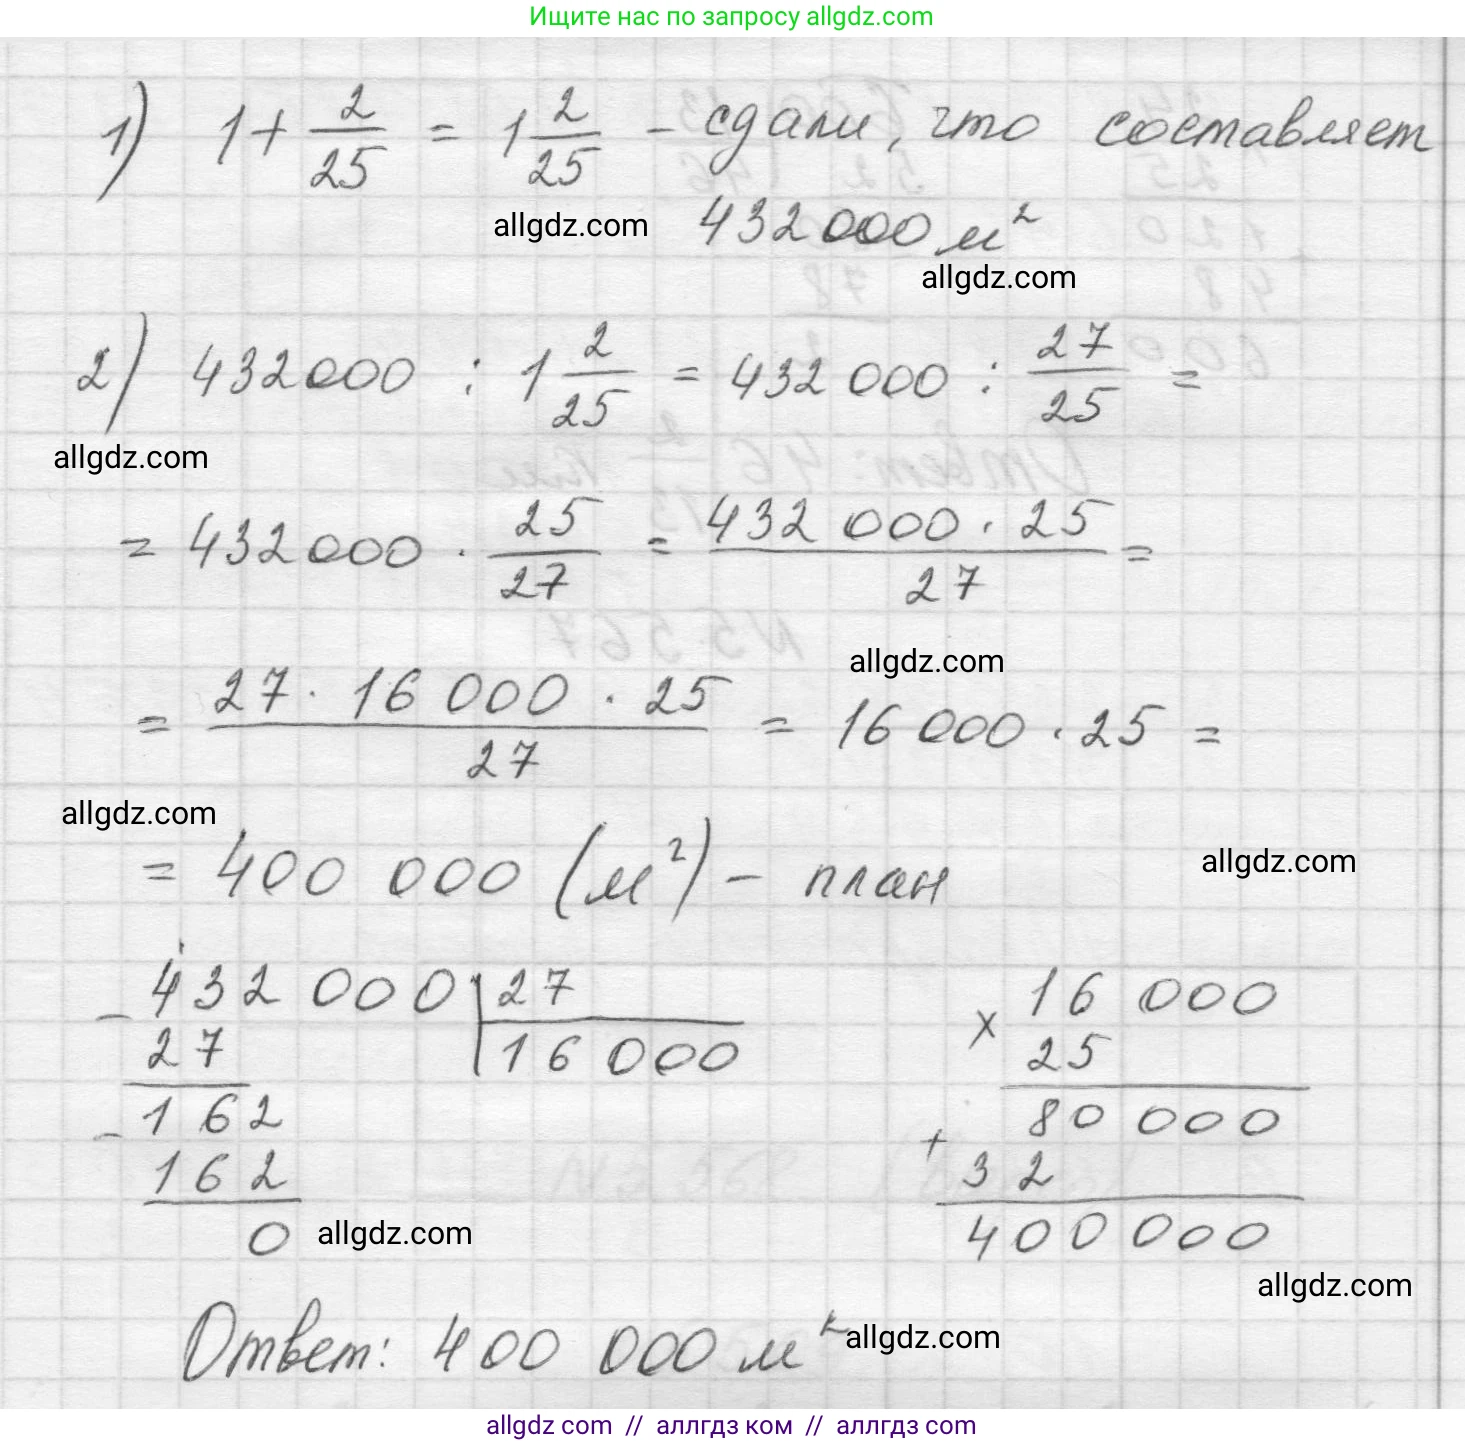 Ищите нас по запросу allgdz.com
1) 1 + 2/25 = 1 2/25 – сдали, что составляет
allgdz.com 432 000 м²
allgdz.com
2) 432 000 : 1 2/25 = 432 000 : 27/25 =
allgdz.com
= 432 000 · 25/27 = 432 000 · 25/27 =
allgdz.com
= 27 · 16 000 · 25/27 = 16 000 · 25 =
allgdz.com
= 400 000 (м²) – план
allgdz.com
– 432 000 | 27
27 | 16 000
– 162
162
0
allgdz.com
× 16 000
25
+ 80 000
32
400 000
allgdz.com
Ответ: 400 000 м² allgdz.com
allgdz com // аллгдз ком // алгдз com